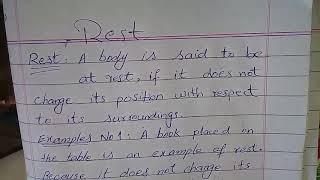 Rest
Rest: A body is said to be
at rest, if it does not
change its position with respect
to its surroundings.
Examples No1: A book placed on
the table is an example of rest.
Because it does not change its